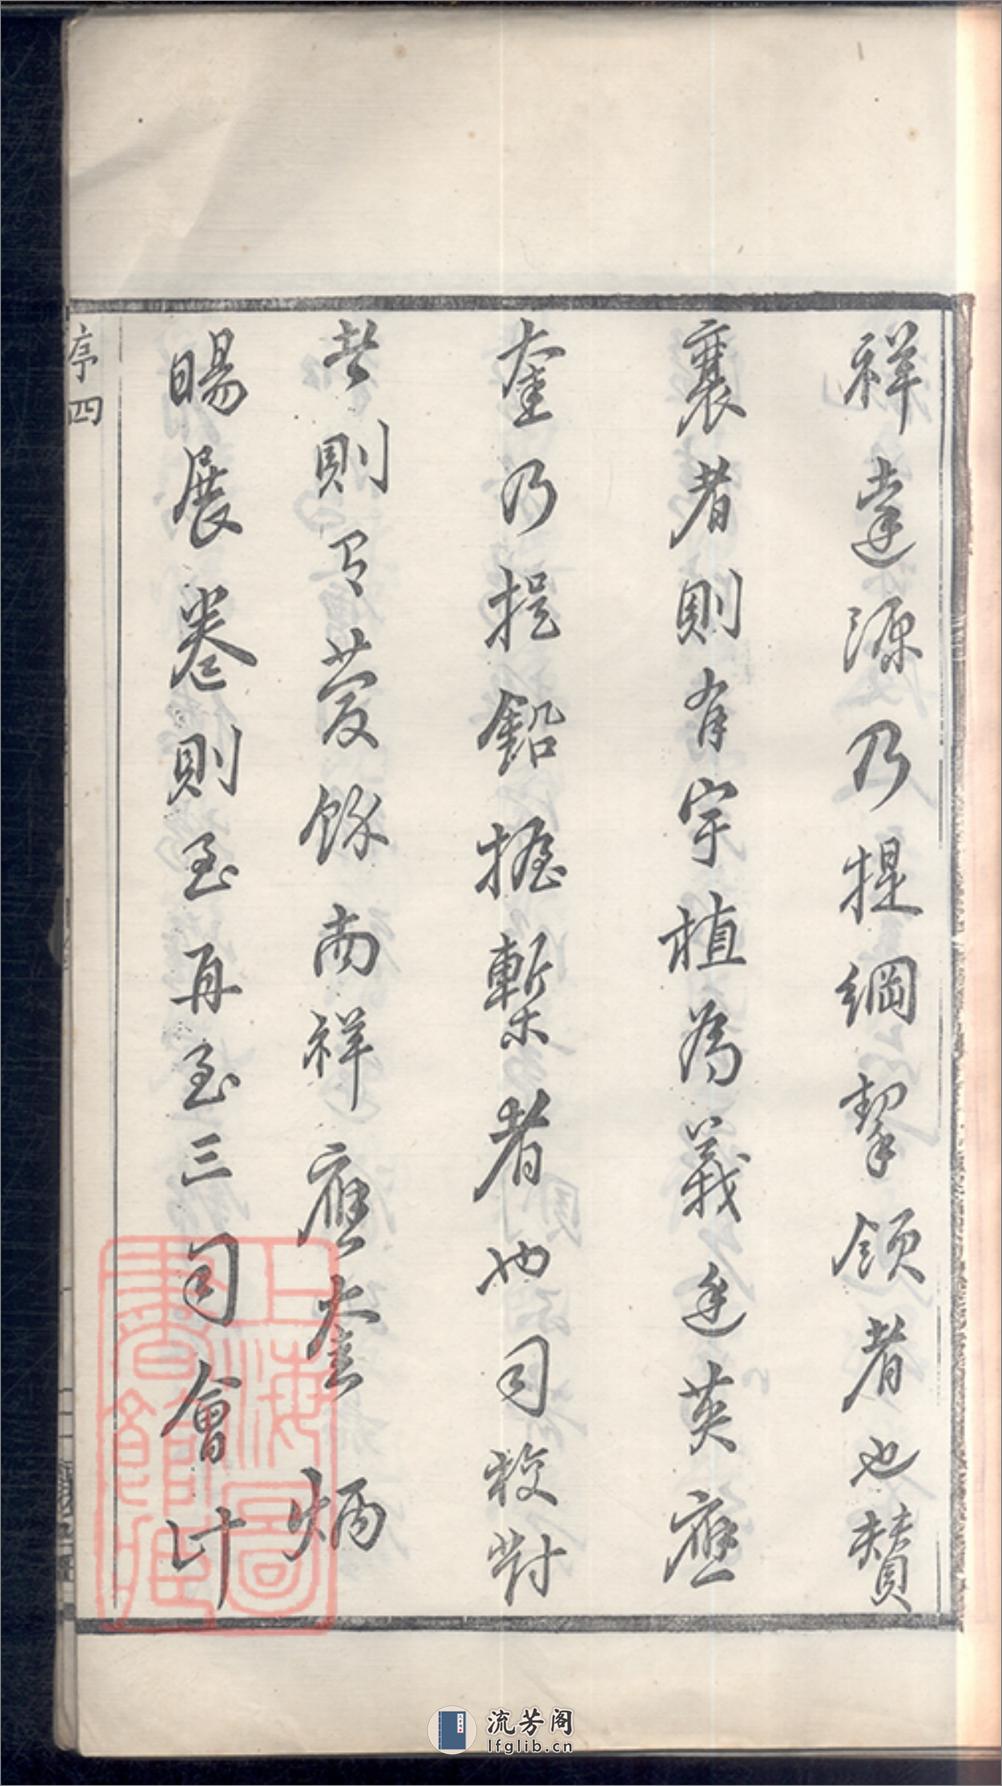 祥達源乃提綱挈領者也贊
襄者則有宇植為義逢英應
奎乃提鉛握槧者也司校對
者則有發餘南祥應奎炳
暘展卷則至再至三司會計
序四
上海圖書館藏
流芳阁
lfglib.cn